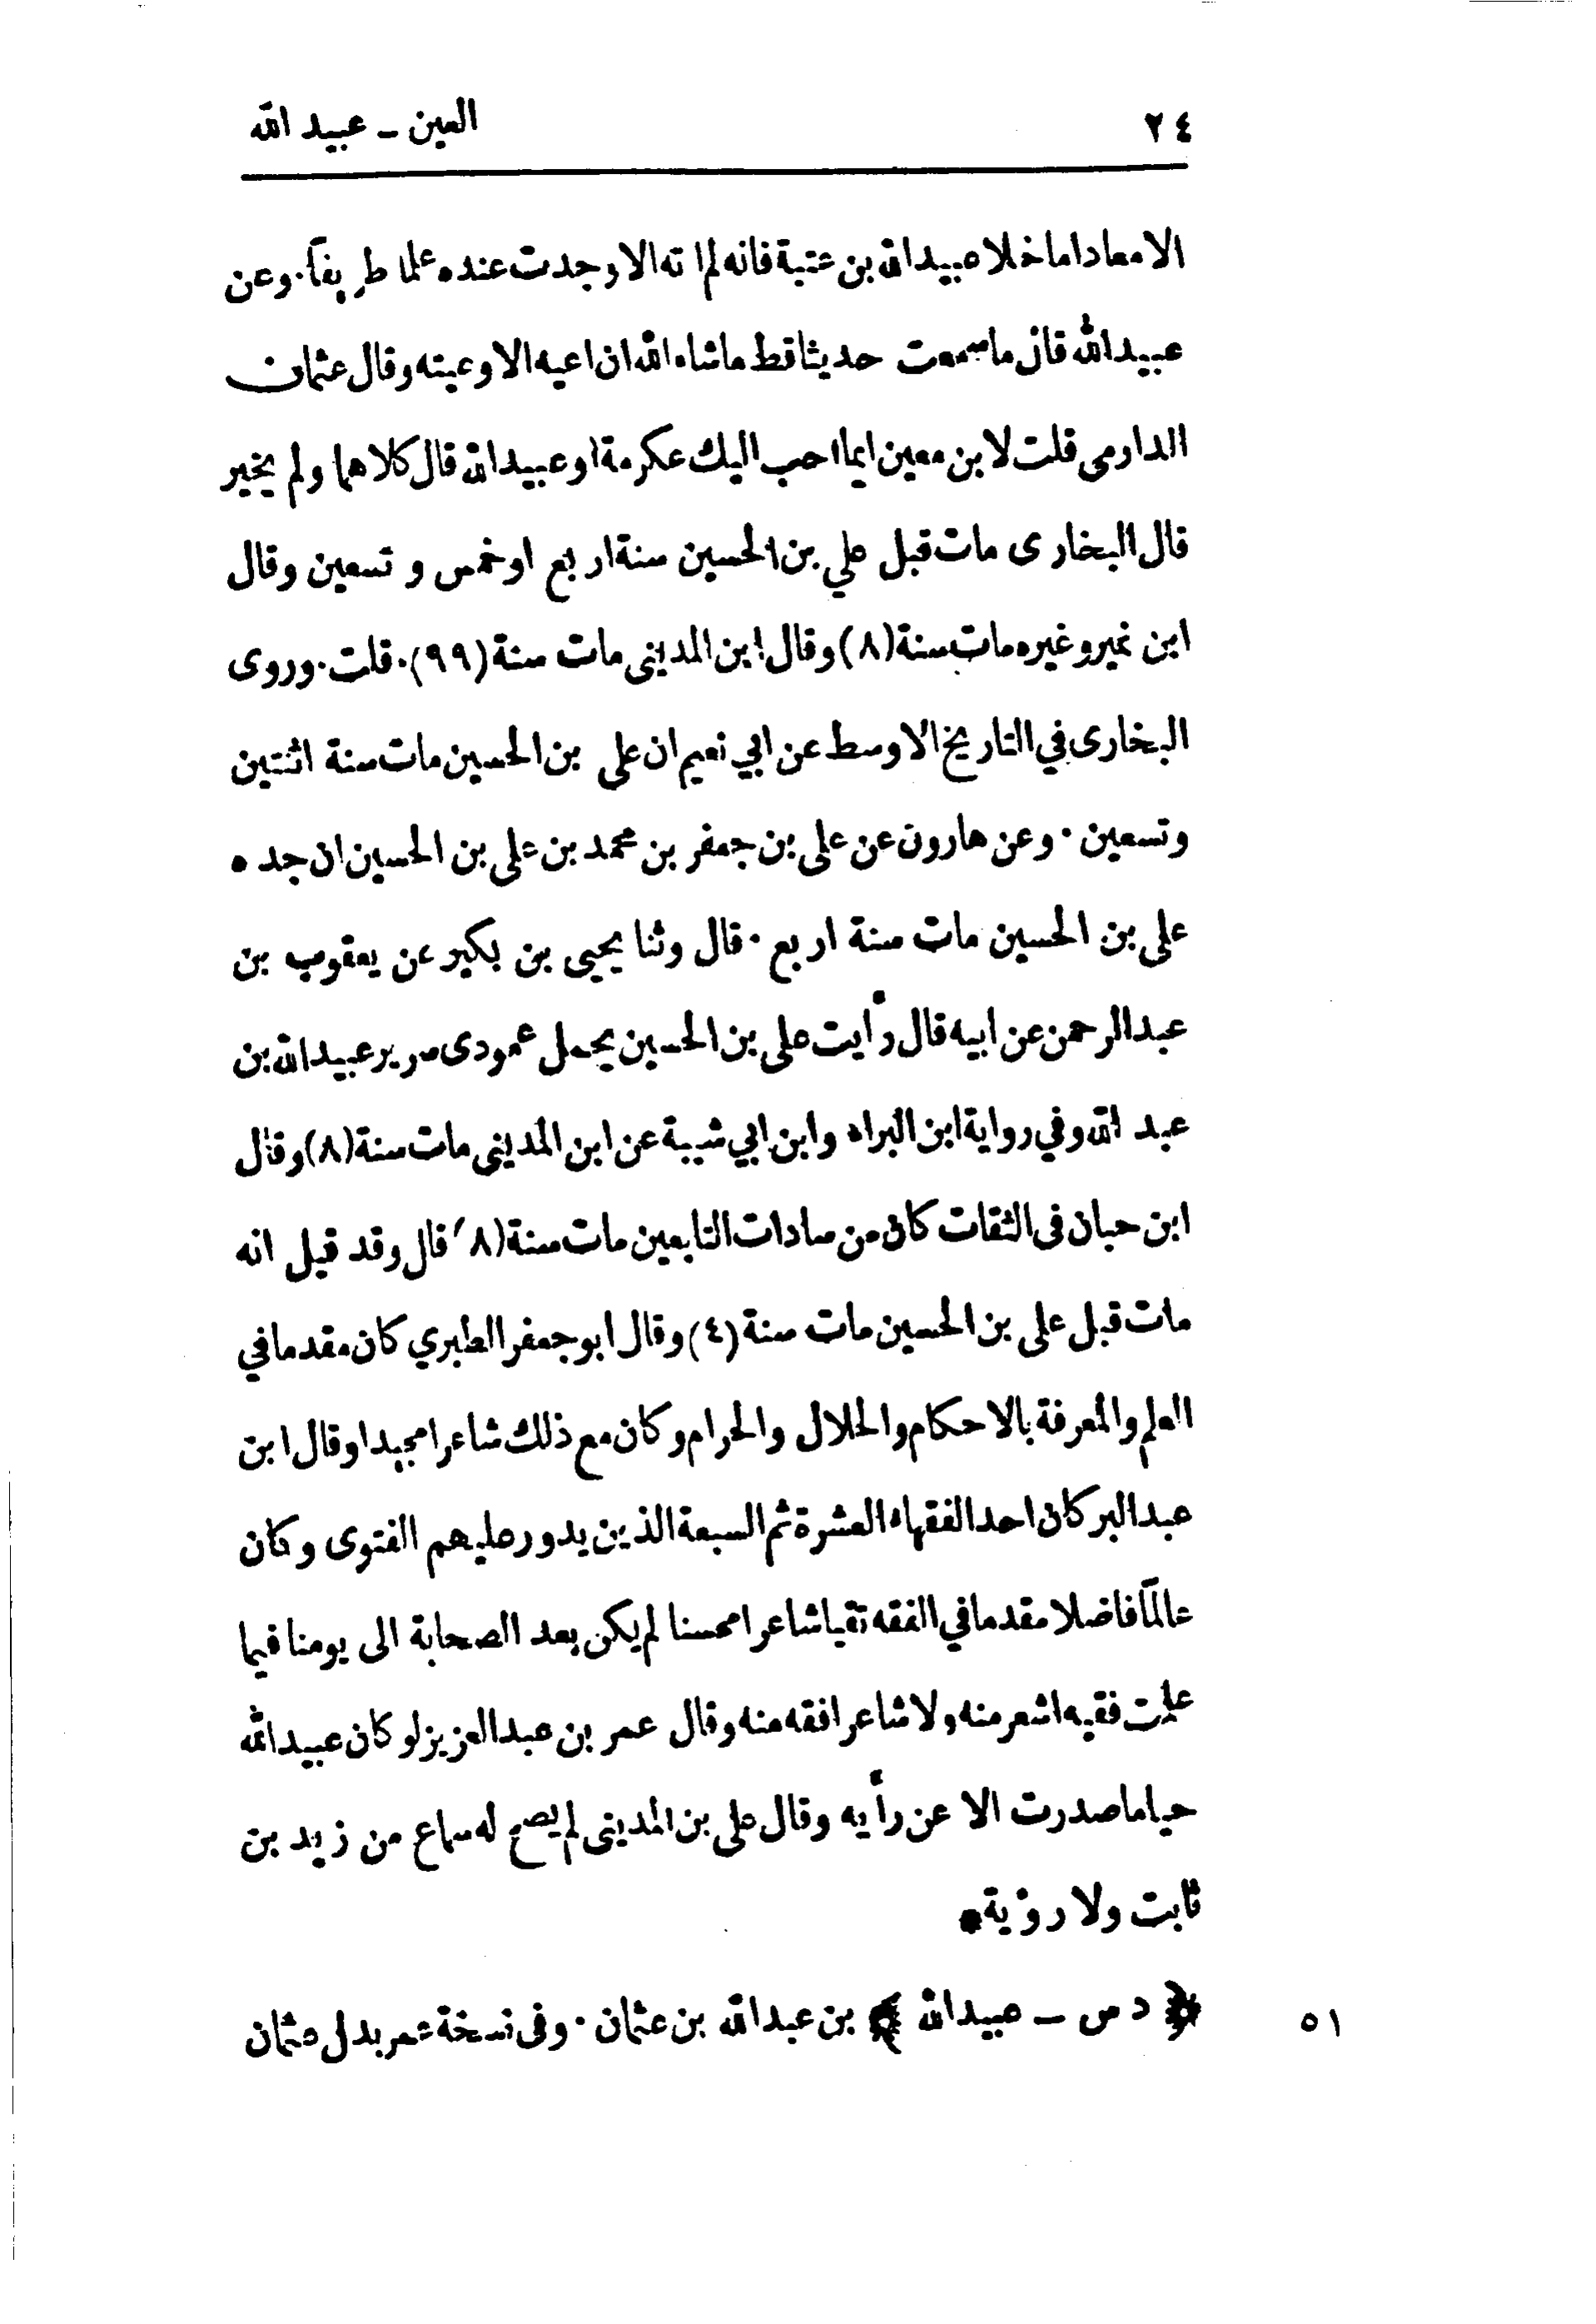 ٢٤
العين ـ عبيد الله
الا معادا ما خلا عبيد الله بن عتبة فانه لم اته الا وجدت عنده علما طريفاً٠وعن
عبيد الله قال ما سمعت حديثا قط ماشاء الله ان اعيه الا وعيته وقال عثمان
الدارمى قلت لابن معين ايما احب اليك عكرمة او عبيد الله قال كلاهما ولم يخير
قال البخارى مات قبل علي بن الحسين سنة اربع او خمس و تسعين وقال
ابن نمير وغيره مات سنة (٨) وقال ابن المدينى مات سنة (٩٩)٠قلت٠وروى
البخارى في التاريخ الاوسط عن ابي نعيم ان على بن الحسين مات سنة اثنتين
وتسعين ٠ وعن هارون عن على بن جعفر بن محمد بن على بن الحسين ان جده
على بن الحسين مات سنة اربع ٠ قال وثنا يحيى بن بكير عن يعقوب بن
عبد الرحمن عن ابيه قال رأيت على بن الحسين يحمل عمودى سرير عبيد الله بن
عبد الله وفي رواية ابن البراء وابن ابي شيبة عن ابن المدينى مات سنة (٨) وقال
ابن حبان فى الثقات كان من سادات التابعين مات سنة (٨) قال وقد قيل انه
مات قبل على بن الحسين مات سنة (٤) وقال ابو جعفر الطبري كان مقدما في
العلم والمعرفة بالاحكام والحلال والحرام وكان مع ذلك شاعرا مجيدا وقال ابن
عبد البر كان احد الفقهاء العشرة ثم السبعة الذين يدور عليهم الفتوى وكان
عالماً فاضلا مقدما في الفقه تقيا شاعرا محسنا لم يكن بعد الصحابة الى يومنا فيما
علمت فقيه اشعر منه ولا شاعر افقه منه وقال عمر بن عبد العزيز لو كان عبيد الله
حيا ما صدرت الا عن رأيه وقال على بن المدينى لم يصح له سماع من زيد بن
ثابت ولا رؤية*
٥١ ﴿ د س ـ عبيد الله ﴾ بن عبد الله بن عثمان ٠ وفى نسخة عمر بدل عثمان